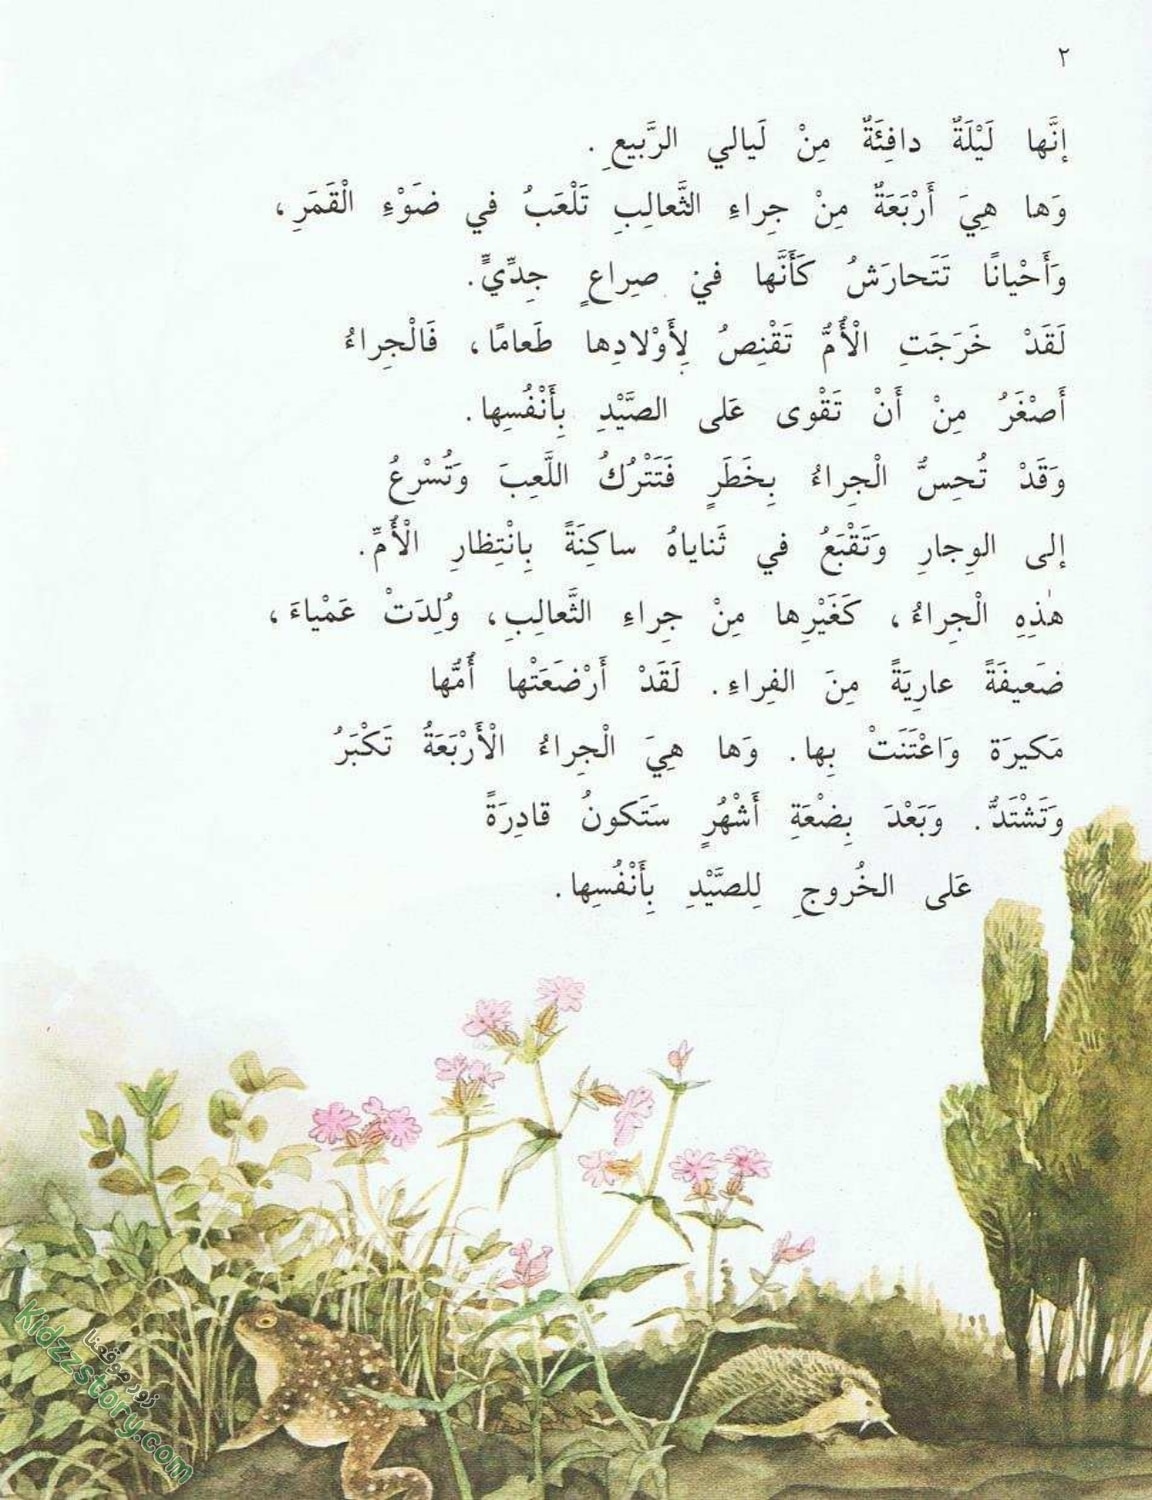 ٢
إنَّها لَيْلَةٌ دافِئَةٌ مِنْ لَيالي الرَّبيعِ.
وَها هِيَ أَرْبَعَةٌ مِنْ جِراءِ الثَّعالِبِ تَلْعَبُ في ضَوْءِ الْقَمَرِ،
وَأَحْيانًا تَتَحارَشُ كَأَنَّها في صِراعٍ جِدِّيٍّ.
لَقَدْ خَرَجَتِ الْأُمُّ تَقْنِصُ لِأَوْلادِها طَعامًا، فَالْجِراءُ
أَصْغَرُ مِنْ أَنْ تَقْوى عَلى الصَّيْدِ بِأَنْفُسِها.
وَقَدْ تُحِسُّ الْجِراءُ بِخَطَرٍ فَتَتْرُكُ اللَّعِبَ وَتُسْرِعُ
إلى الوِجارِ وَتَقْبَعُ في ثَناياهُ ساكِنَةً بِانْتِظارِ الْأُمِّ.
هٰذِهِ الْجِراءُ، كَغَيْرِها مِنْ جِراءِ الثَّعالِبِ، وُلِدَتْ عَمْياءَ،
ضَعيفَةً عارِيَةً مِنَ الفِراءِ. لَقَدْ أَرْضَعَتْها أُمُّها
مَكيرَة وَاعْتَنَتْ بِها. وَها هِيَ الْجِراءُ الْأَرْبَعَةُ تَكْبَرُ
وَتَشْتَدُّ. وَبَعْدَ بِضْعَةِ أَشْهُرٍ سَتَكونُ قادِرَةً
عَلى الخُروجِ لِلصَّيْدِ بِأَنْفُسِها.
زوروا موقعنا
Kidzzstory.com